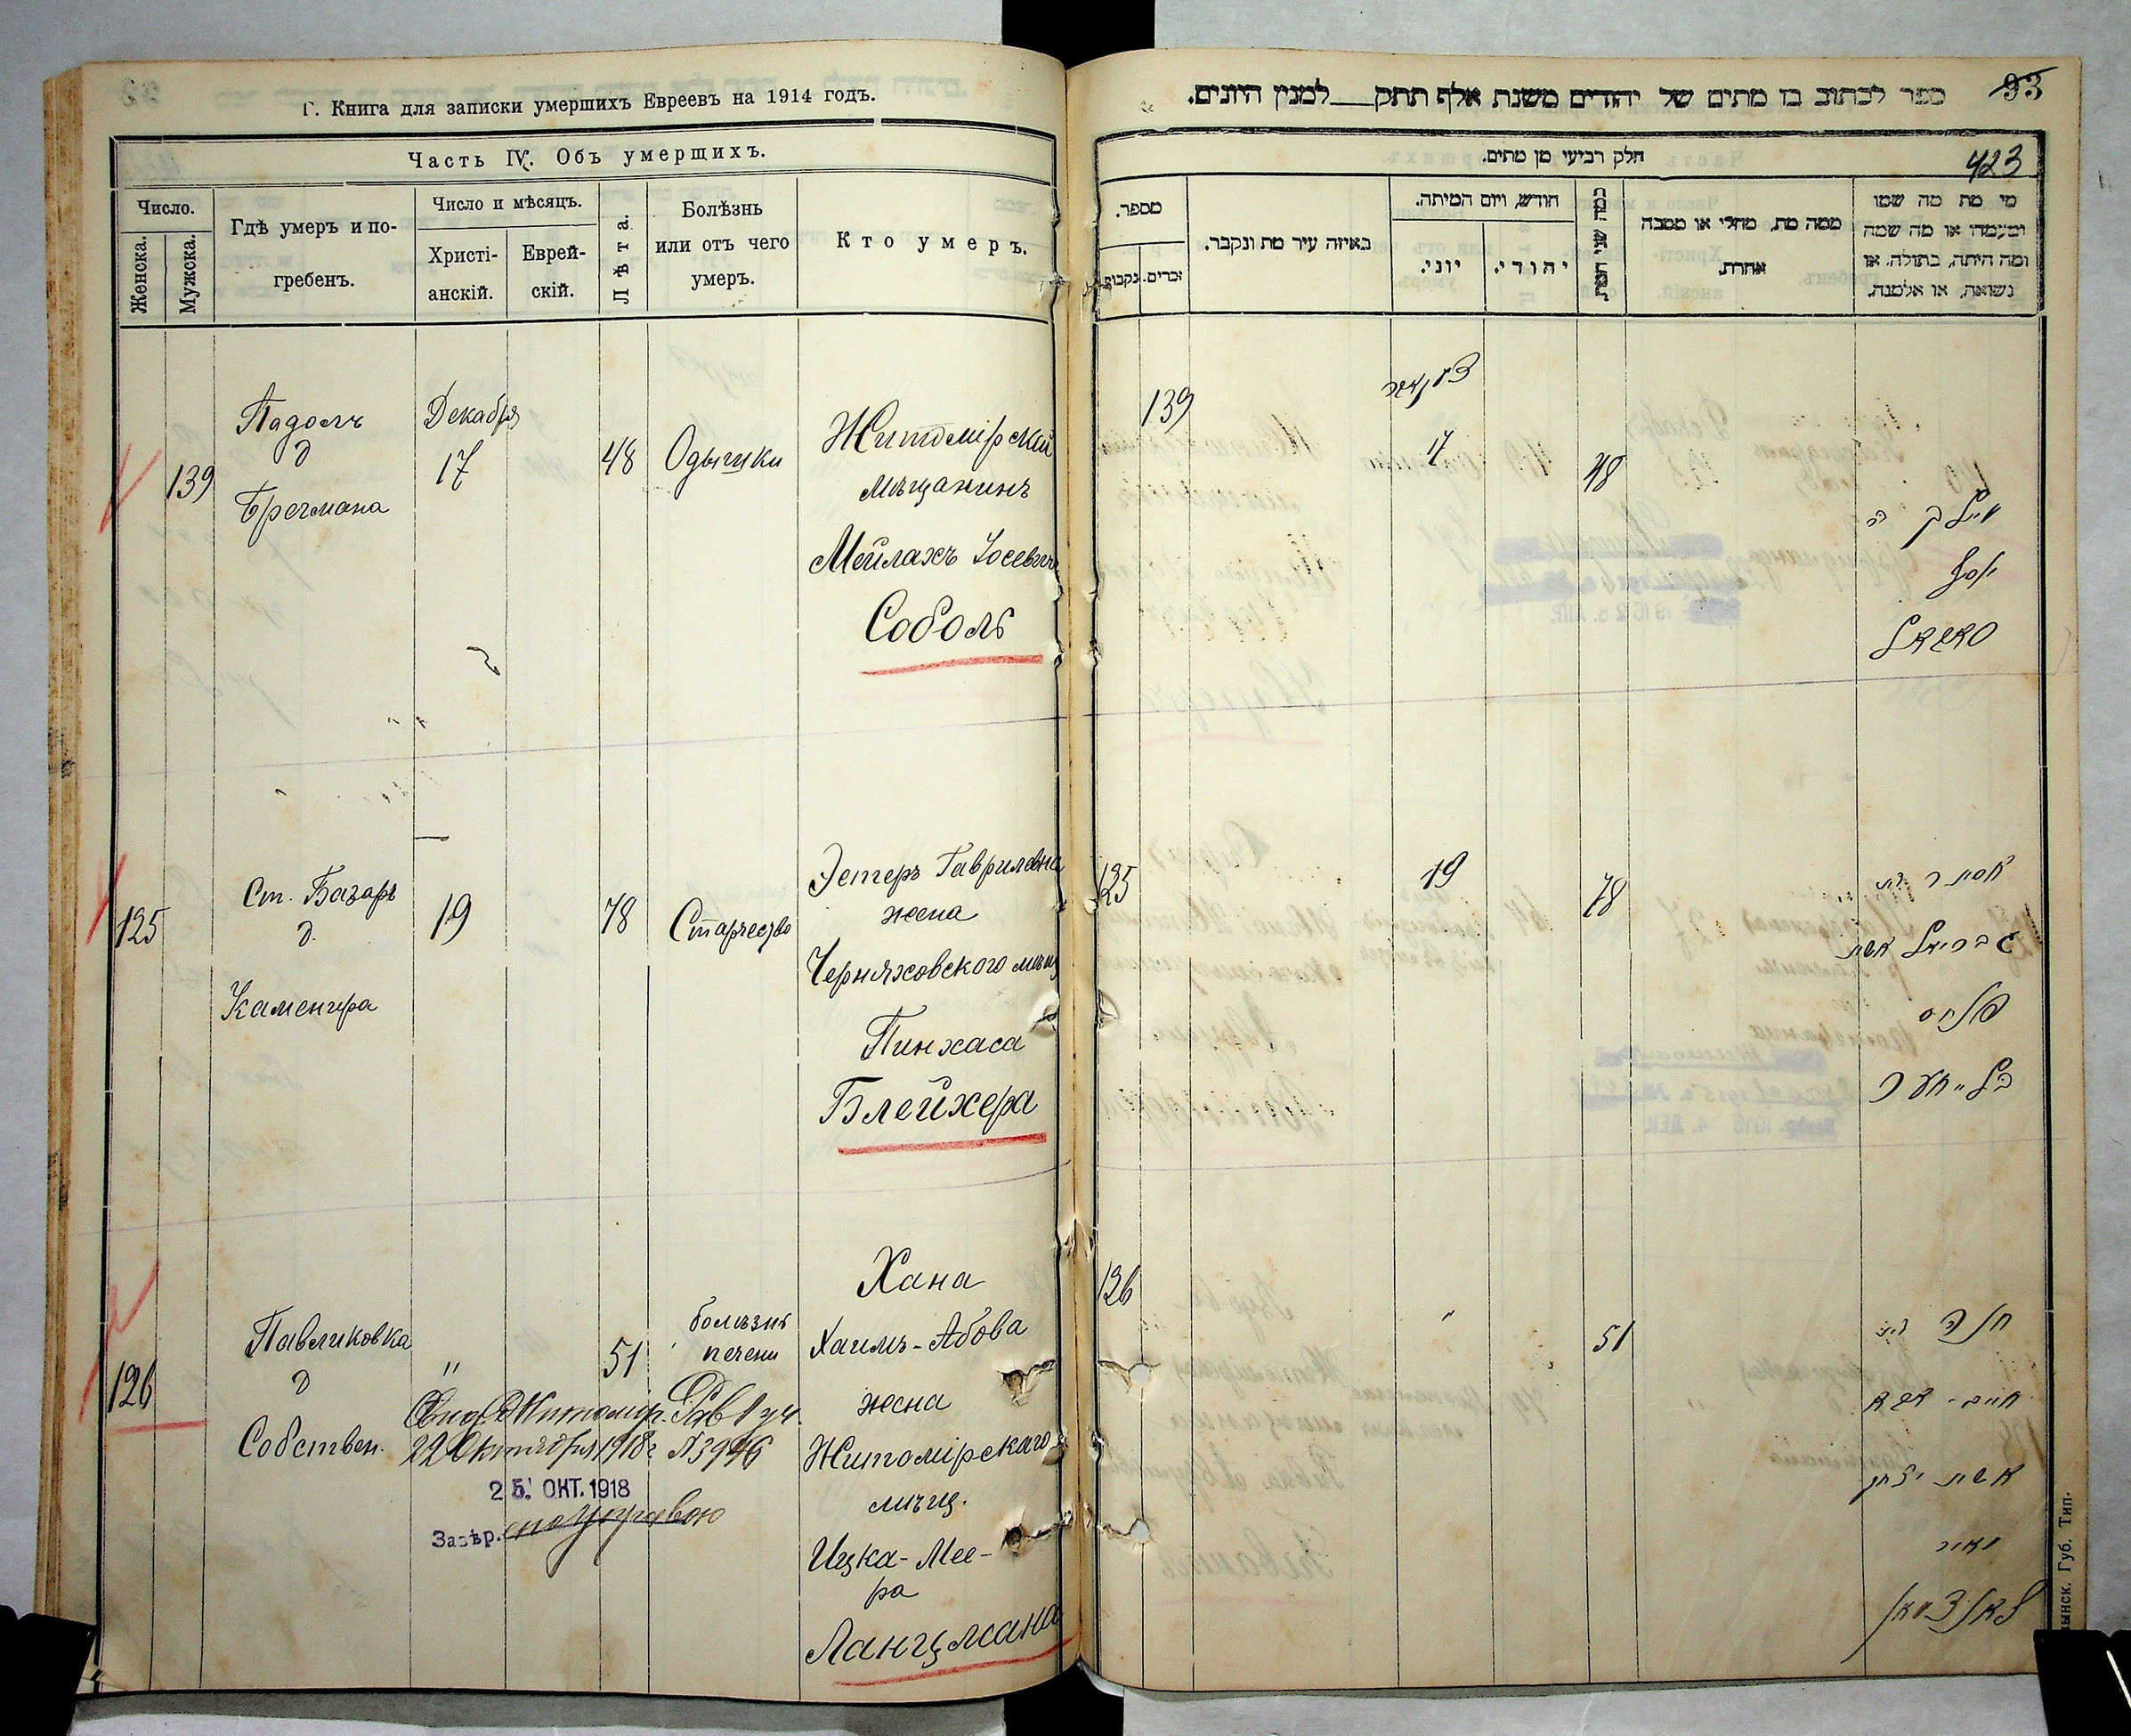 Г. Книга для записки умершихъ Евреевъ на 1914 годъ.
Часть IV. Объ умершихъ.
Число.
Женска.
Мужска.
Гдѣ умеръ и по-
гребенъ.
Число и мѣсяцъ.
Христі-
анскій.
Еврей-
скій.
Лѣта.
Болѣзнь
или отъ чего
умеръ.
Кто умеръ.
139
Подолъ
д
Брегмана
Декабря
17
48
Одышки
Житомірскій
мѣщанинъ
Мейлахъ Іосевичъ
Соболь
125
Ст. Базаръ
д.
Каменира
19
78
Старчество
Эстеръ Гавриловна
жена
Черняховского мѣщ
Пинхаса
Блейхера
126
Павликовка
д
Собствен.
"
51
болѣзнь
печени
Хана
Хаимъ-Абова
жена
Житомірскаго
мѣщ.
Ицка-Мее-
ра
Ланцмана
22 Октября 1918 г. №3996
25. ОКТ. 1918
Завѣр.
93
ספר לכתוב בו מתים של יהודים משנת אלף תתק למנין היונים.
חלק רביעי מן מתים.
423
מספר.
זכרים.
נקבות.
באיזה עיר מת ונקבר.
חודש, ויום המיתה.
יוני.
יהודי.
כמה שני המת
ממה מת, מחלי או מסבה
אחרת.
מי מת מה שמו
ומעמדו או מה שמה
ומה היתה, בתולה, או
נשואה, או אלמנה.
139
דעקאבר
17
48
מיילך ב
יוסף
סאבאל
125
19
78
אסתר בת
גבריאל אשת
פנחס
בלייכער
126
"
51
חנה בת
חיים-אבא
אשת יצחק
מאיר
לאנצמאן
ынск. Губ. Тип.